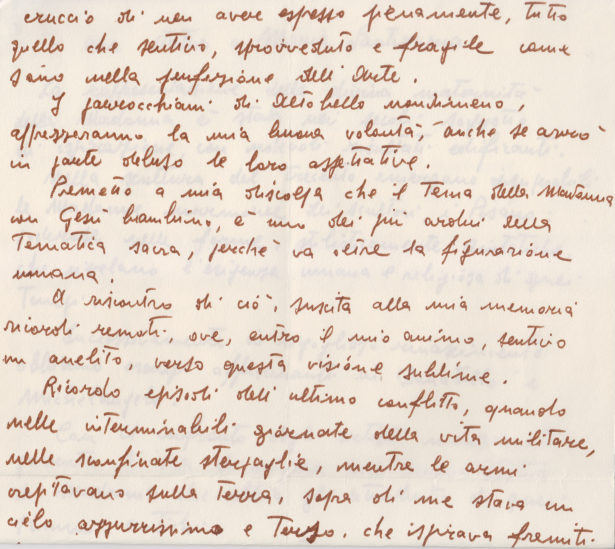 cruccio di non avere espresso pienamente, tutto
quello che sentivo, sprovveduto e fragile come
sono nella perfezione dell'Arte.
I parrocchiani di Altobello nondimeno,
apprezzeranno la mia buona volontà, anche se avrò
in parte deluso le loro aspettative.
Premetto a mia discolpa che il tema della Madonna
con Gesù bambino, è uno dei più ardui della
Tematica sacra, perchè va oltre la figurazione
umana.
A riscontro di ciò, suscita alla mia memoria
ricordi remoti, ove, entro il mio animo, sentivo
un anelito, verso questa visione sublime.
Ricordo episodi dell'ultimo conflitto, quando
nelle interminabili giornate della vita militare,
nelle sconfinate sterpaglie, mentre le armi
crepitavano sulla terra, sopra di me stava un
cielo azzurrissimo e terso, che ispirava fremiti.